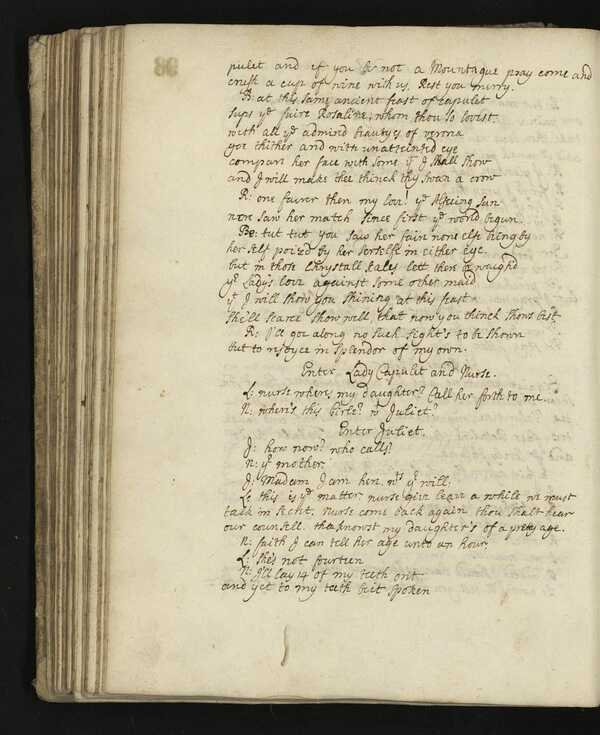 98
pulet and if you be not a Mountague pray come and
crush a cup of wine with us. Rest you merry.
B: at this same ancient feast of Capulet
sups yᵉ faire Rosaline, whom thou so lovest
with all yᵉ admird beautyes of verona
goe thither and with unatteinted eye
compare her face with some yᵗ I shall show
and I will make thee thinck thy swan a crow
R: one fairer then my love! yᵉ allseeing sun
nere saw her match since first yᵉ world begun.
Be: tut tut you saw her fair none else being by
her self poizd by her self in either eye
but in those Chrystall scales lett there be waigh'd
yʳ Lady's love against some other maid
yᵗ I will show you shining at this feast
she'll scarce show well, that now you thinck shows best
R: I'll goe along no such sight's to be shown
but to rejoyce in splendor of my own.
Enter Lady Capulet and Nurse.
L: nurse wheres my daughter? Call her forth to me.
N: where's this Girle? w Juliet?
Enter Juliet.
J: how now? who calls?
N: yʳ mother.
J: Madam I am here. wᵗˢ yʳ will.
L: this is yᵉ matter. nurse give leave a while we must
talk in secret. Nurse come back again thou shalt hear
our counsell. thou knowst my daughter's of a pretty age.
N: faith I can tell her age unto an hour.
L: she's not fourteen
N: I'll lay 14 of my teeth ont.
and yet to my teeth be it spoken